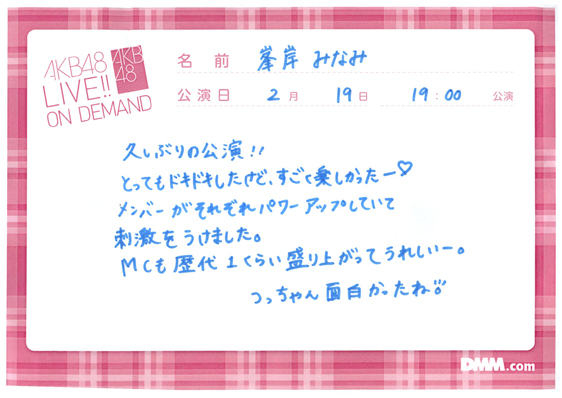 AKB48
LIVE!!
ON DEMAND
AKB
48
名前 峯岸 みなみ
公演日 2月 19日 19:00 公演
久しぶりの公演!!
とってもドキドキしたけど、すごく楽しかったー♡
メンバーがそれぞれパワーアップしていて
刺激をうけました。
MCも歴代1くらい盛り上がってうれしいー。
つっちゃん面白かったね
DMM.com